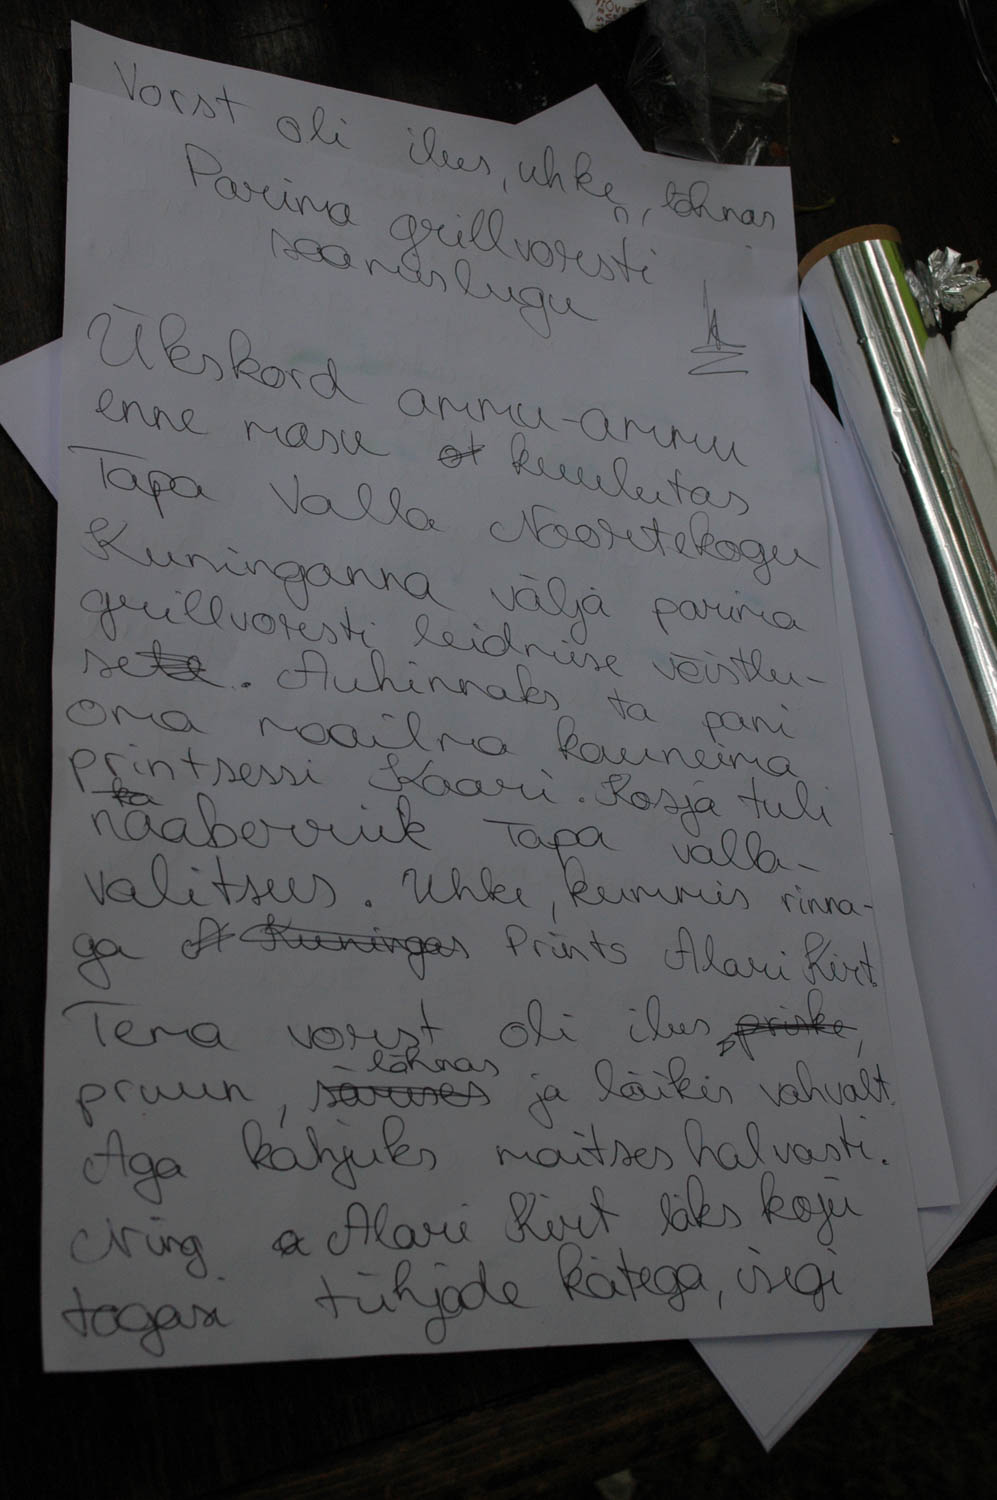 Vorst oli ilus, uhke, lõhnas
Parima grillvorsti
saamislugu
Ükskord ammu-ammu
enne masu kuulutas
Tapa Valla Nooretekogu
Kuninganna välja parima
grillvorsti leidmise võistlu-
se. Auhinnaks ta pani
oma maailma kauneima
printsessi Kaari. Kosja tuli
ka
naaberriik Tapa valla-
valitsus. Uhke, kummis rinna-
ga Kuningas Prints Alari Kirt.
Tema vorst oli ilus, priske,
lõhnas
pruun, ja läikis vahvalt.
Aga kahjuks maitses halvasti.
Ning Alari Kirt läks koju
tagasi tühjade kätega, isegi